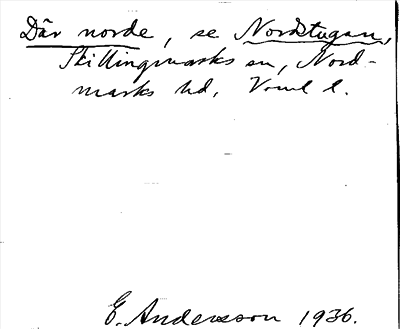 Där norde, se Nordstugan,
Skillingmarks sn, Nord-
marks hd, Vrml l.
E. Andersson 1936.